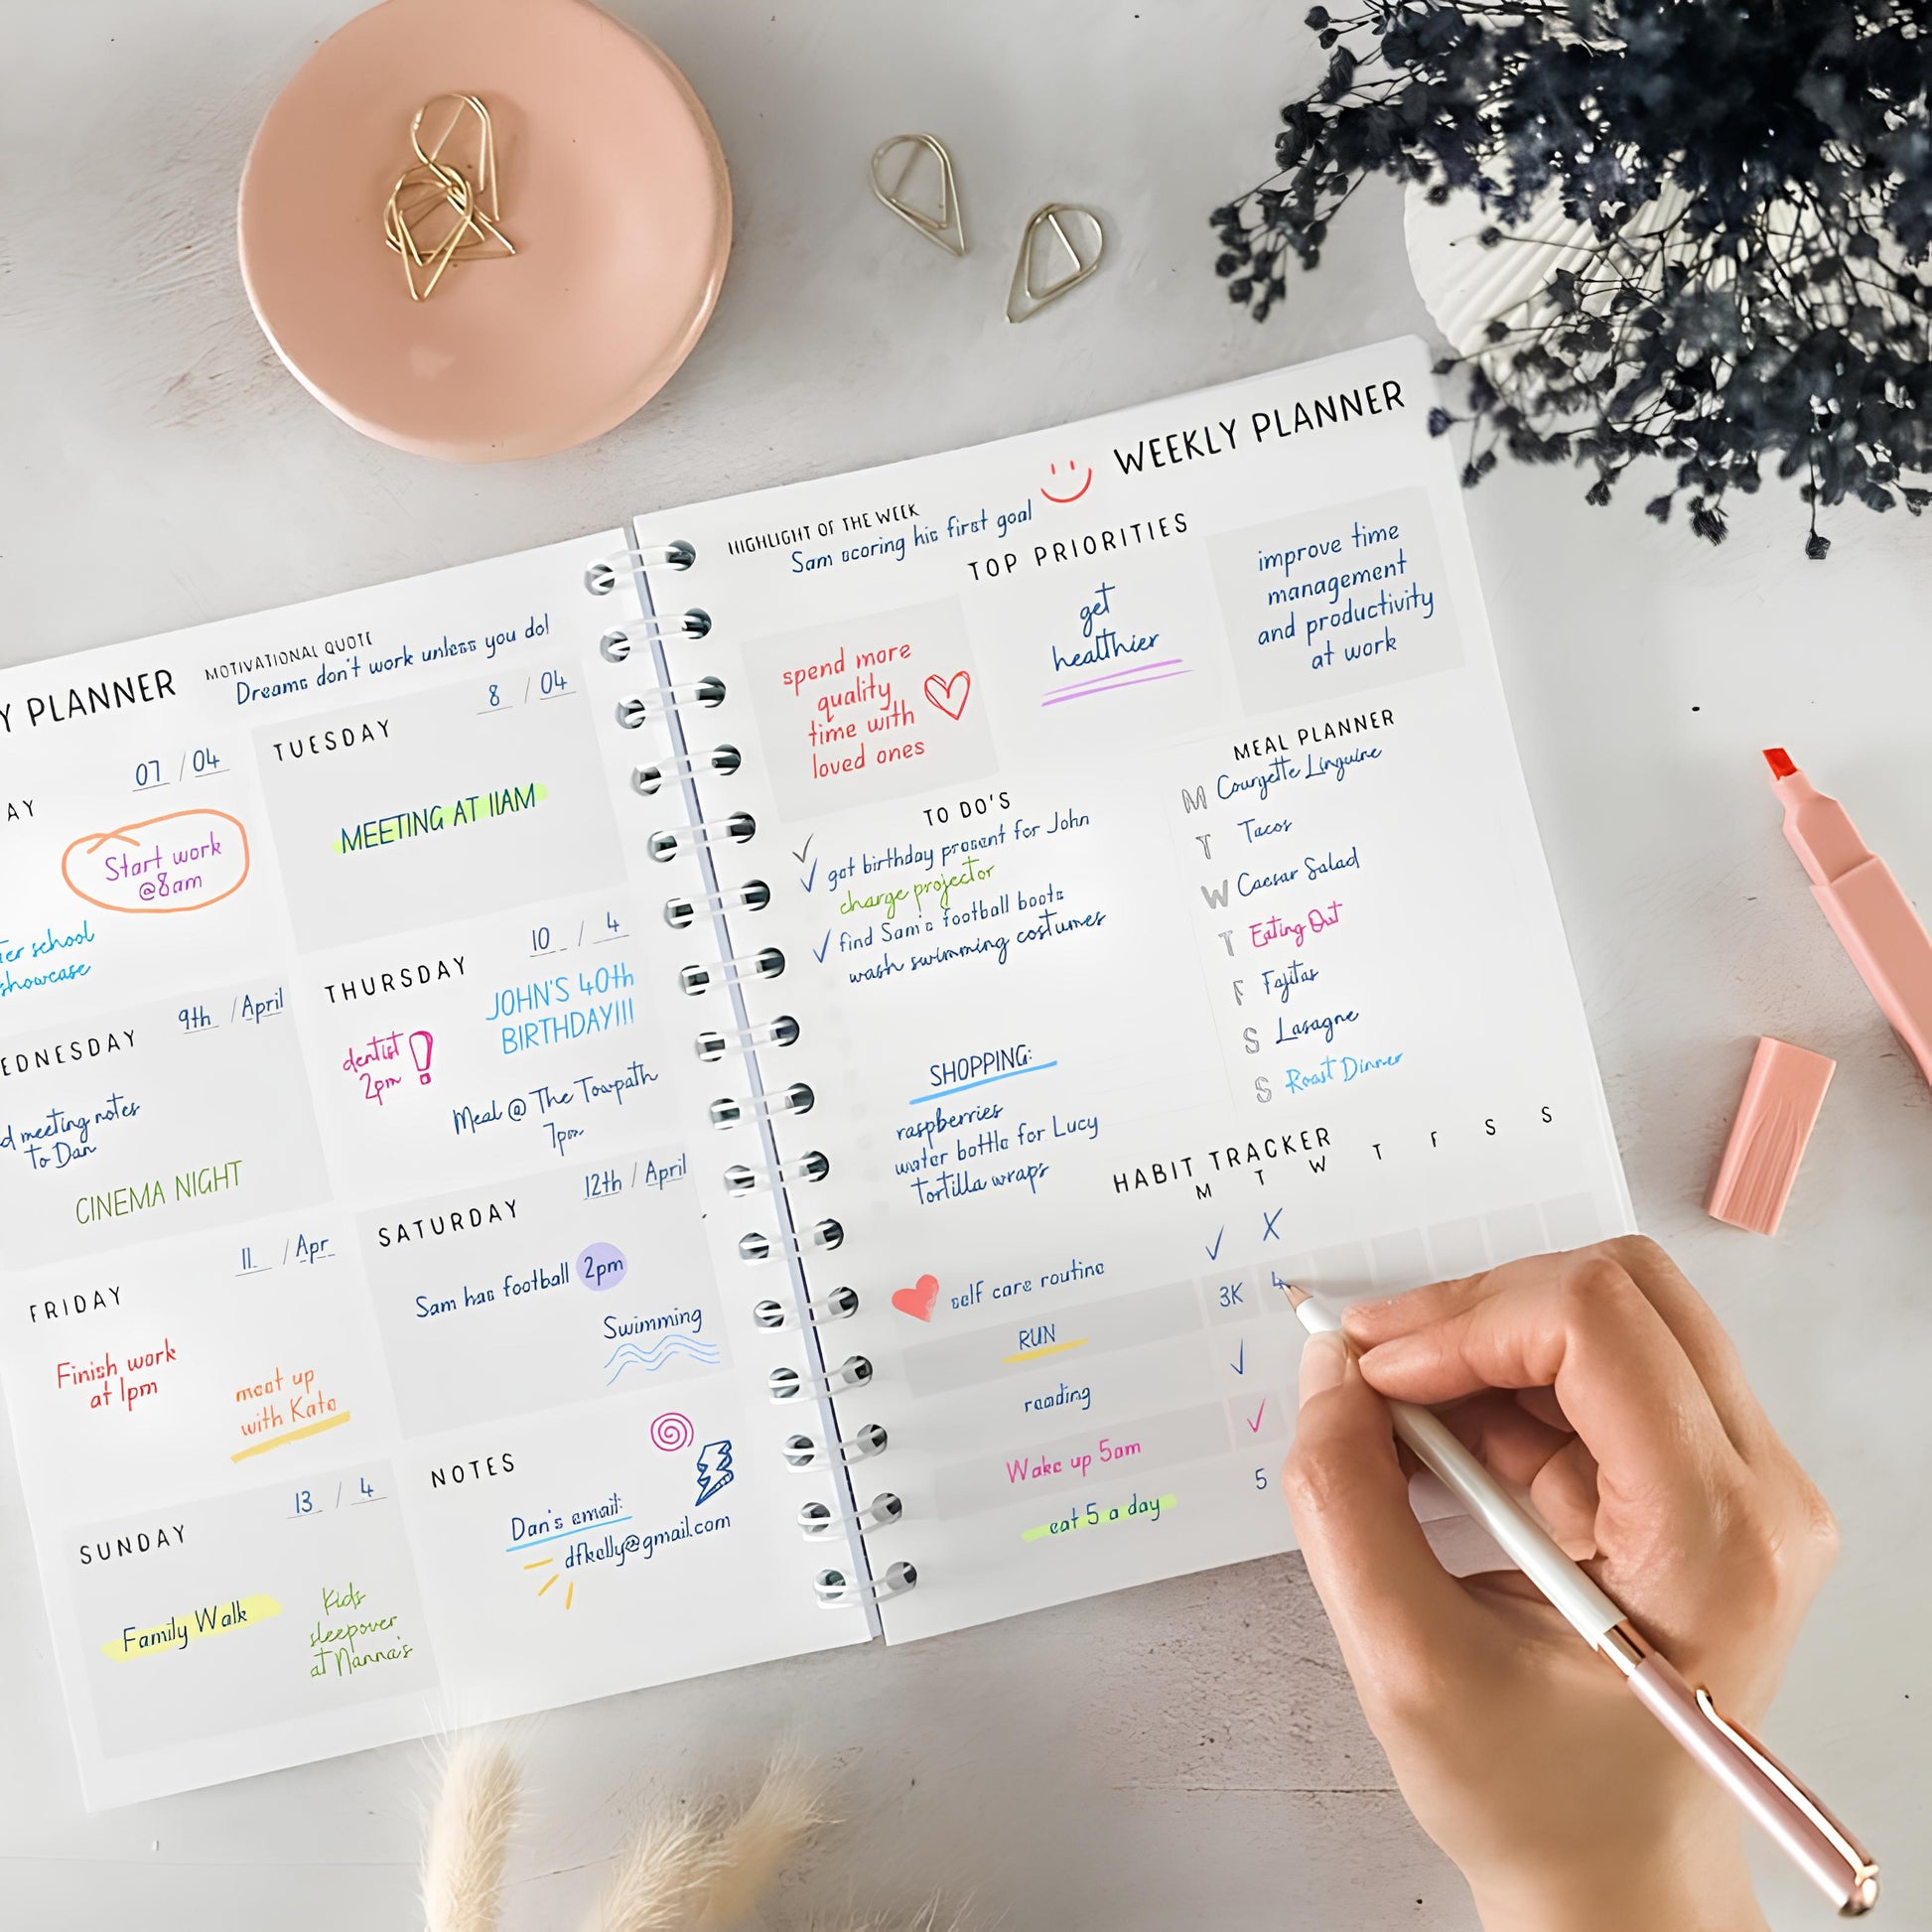 Y PLANNER
MOTIVATIONAL QUOTE
Dreams don't work unless you do!
AY
07 / 04
Start work
@8am
ter school
showcase
TUESDAY
8 / 04
MEETING AT 11AM
EDNESDAY
9th / April
d meeting notes
to Dan
CINEMA NIGHT
THURSDAY
10 / 4
JOHN'S 40th
BIRTHDAY!!!
dentist
2pm !
Meal @ The Towpath
7pm
FRIDAY
11 / Apr
Finish work
at 1pm
meet up
with Kate
SATURDAY
12th / April
Sam has football 2pm
Swimming
SUNDAY
13 / 4
Family Walk
Kids
sleepover
at Nanna's
NOTES
Dan's email:
dfkelly@gmail.com
WEEKLY PLANNER
HIGHLIGHT OF THE WEEK
Sam scoring his first goal
TOP PRIORITIES
spend more
quality
time with
loved ones
get
healthier
improve time
management
and productivity
at work
TO DO'S
✓
✓ get birthday present for John
charge projector
✓ find Sam's football boots
wash swimming costumes
SHOPPING:
raspberries
water bottle for Lucy
tortilla wraps
MEAL PLANNER
M Courgette Linguine
T Tacos
W Caesar Salad
T Eating Out
F Fajitas
S Lasagne
S Roast Dinner
HABIT TRACKER
M T W T F S S
self care routine ✓ X
RUN 3K 4
reading ✓
Wake up 5am ✓
eat 5 a day 5